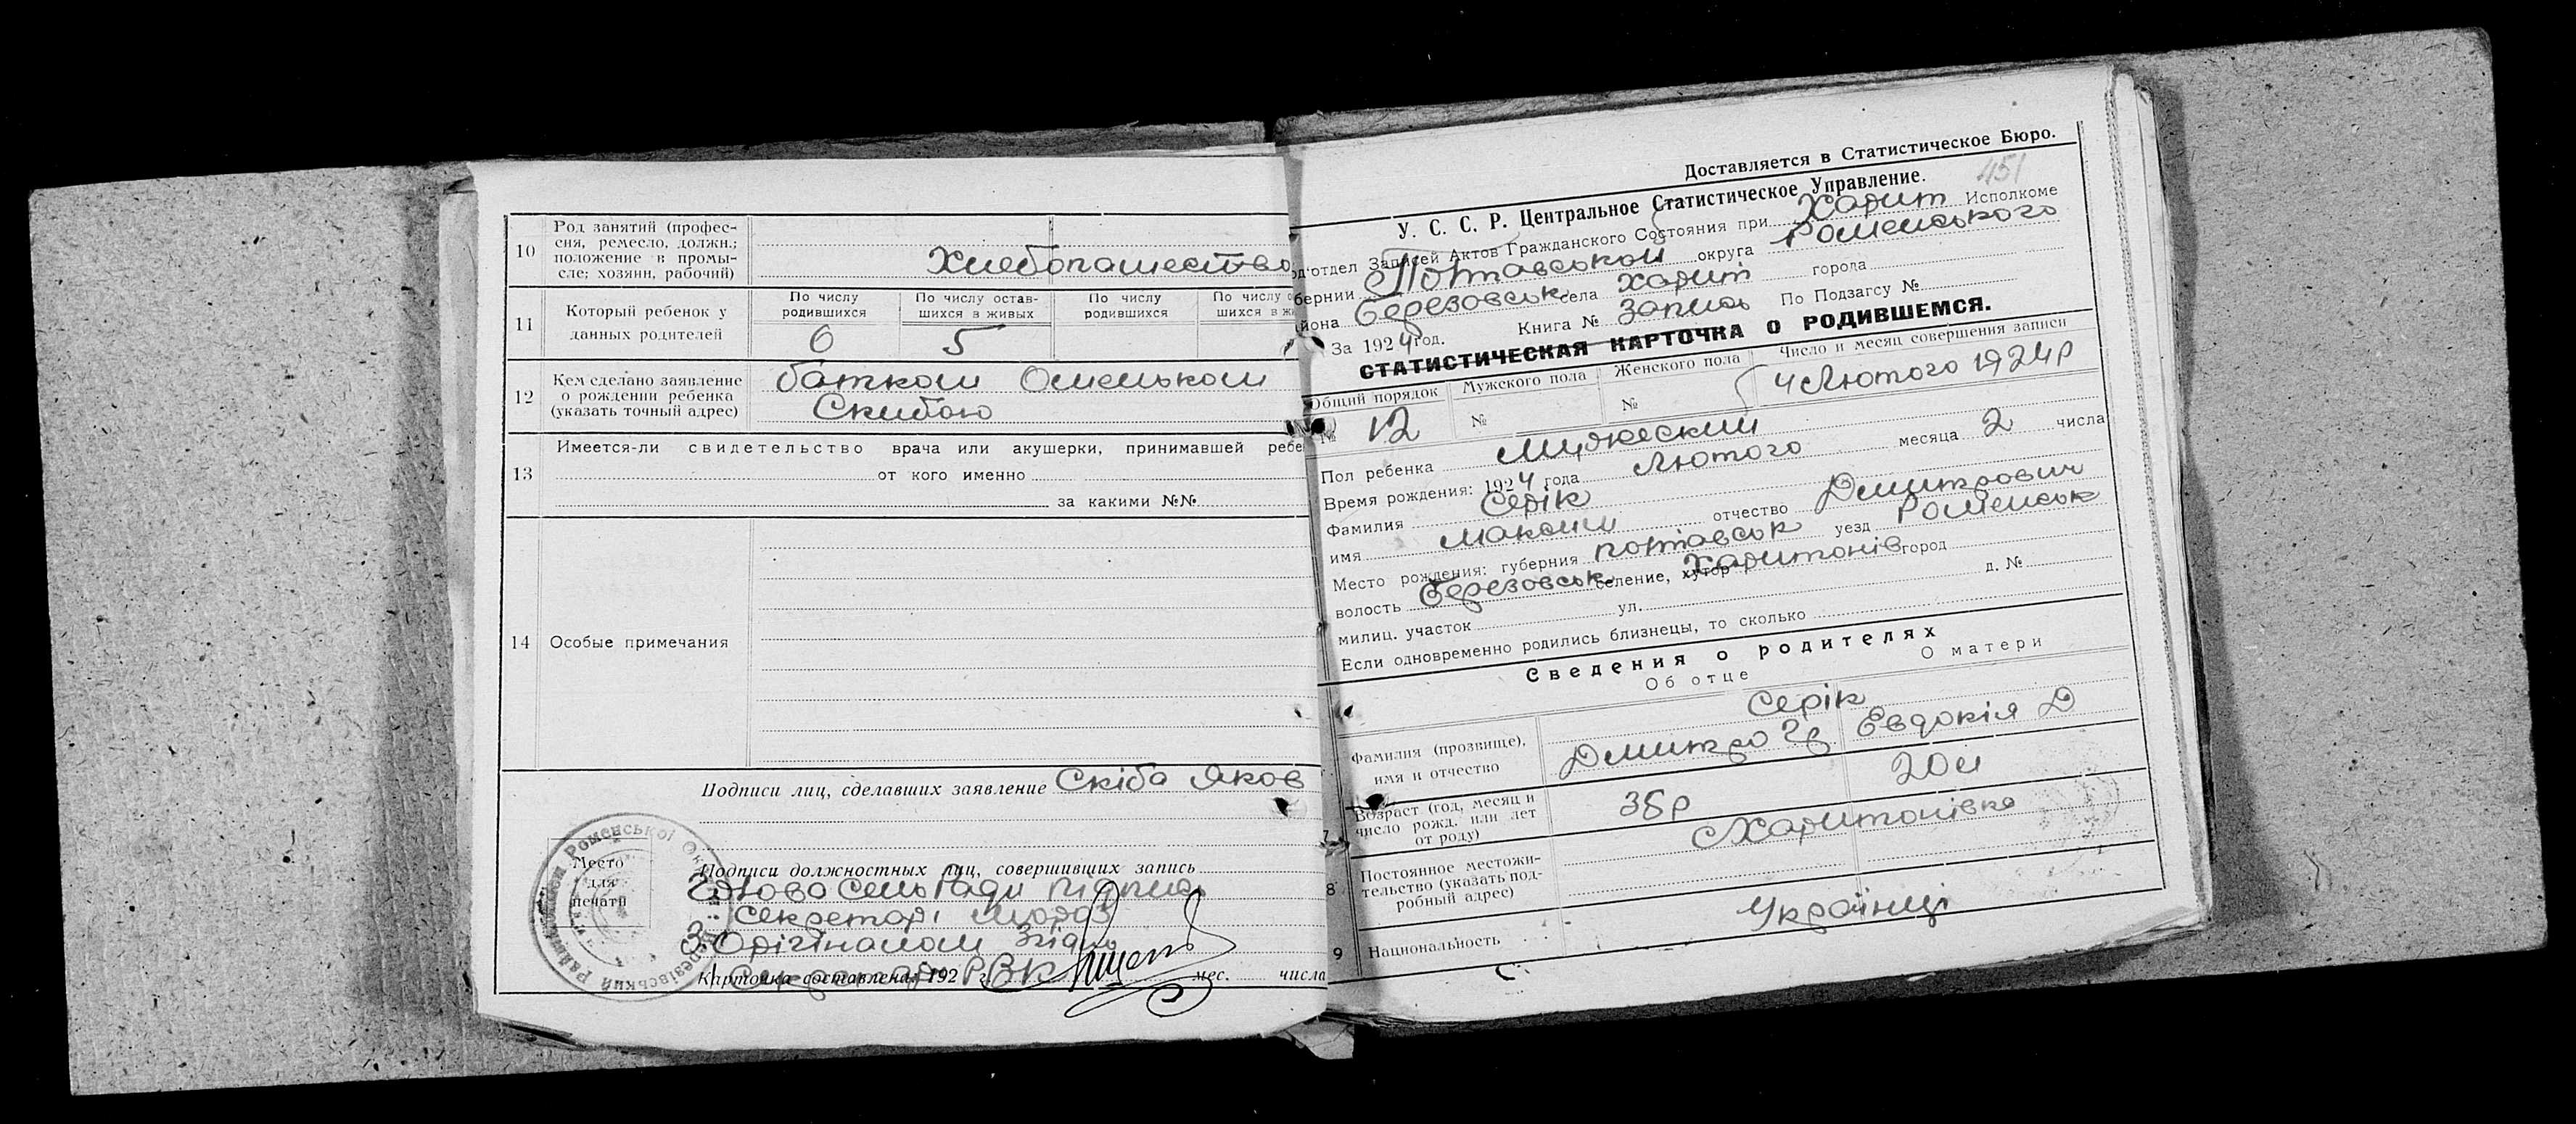 10 Род занятий (профес-
сия, ремесло, должн.;
положение в промы-
сле; хозяин, рабочий)
Хлебопашество
11 Который ребенок у
данных родителей
По числу
родившихся
По числу остав-
шихся в живых
По числу
родившихся
По числу
шихся в
6 5
12 Кем сделано заявление
о рождении ребенка
(указать точный адрес)
батьком Омельком
Скибою
13 Имеется-ли свидетельство врача или акушерки, принимавшей
от кого именно
за какими №№
14 Особые примечания
Подписи лиц, сделавших заявление Скіба Яков
Место
для
печати
Подписи должностных лиц, совершивших запись
Голова СельРади підпись
Секретарь Мороз
З Орігіналом Згідно
Карточка составлена 192 г. мес. числа
Секретар РВК
Доставляется в Статистическое Бюро.
451
У. С. С. Р. Центральное Статистическое Управление.
отдел Записей Актов Гражданского Состояния при Харит Исполкоме
бернии Полтавськой округа Роменського
йона Березовськ села Харит города
За 1924 год. Книга № запись По Подзагсу №
СТАТИСТИЧЕСКАЯ КАРТОЧКА О РОДИВШЕМСЯ.
Общий порядок Мужского пола Женского пола Число и месяц совершения записи
№ 12 № № 4 Лютого 1924р
Пол ребенка Мужеский
Время рождения: 1924 года Лютого месяца 2 числа
Фамилия Серік
имя Максим отчество Дмитрович
Место рождения: губерния Полтавськ уезд Роменськ
волость Березовськ селение, хутор Харитонів город
милиц. участок ул. д. №
Если одновременно родились близнецы, то сколько
Сведения о родителях
Об отце О матери
Фамилия (прозвище),
имя и отчество
Серік
Дмитро Гр Евдокія Д
7 Возраст (год, месяц и
число рожд. или лет
от роду)
8 Постоянное местожи-
тельство (указать под-
робный адрес)
Харитонівка
9 Национальность
Українці